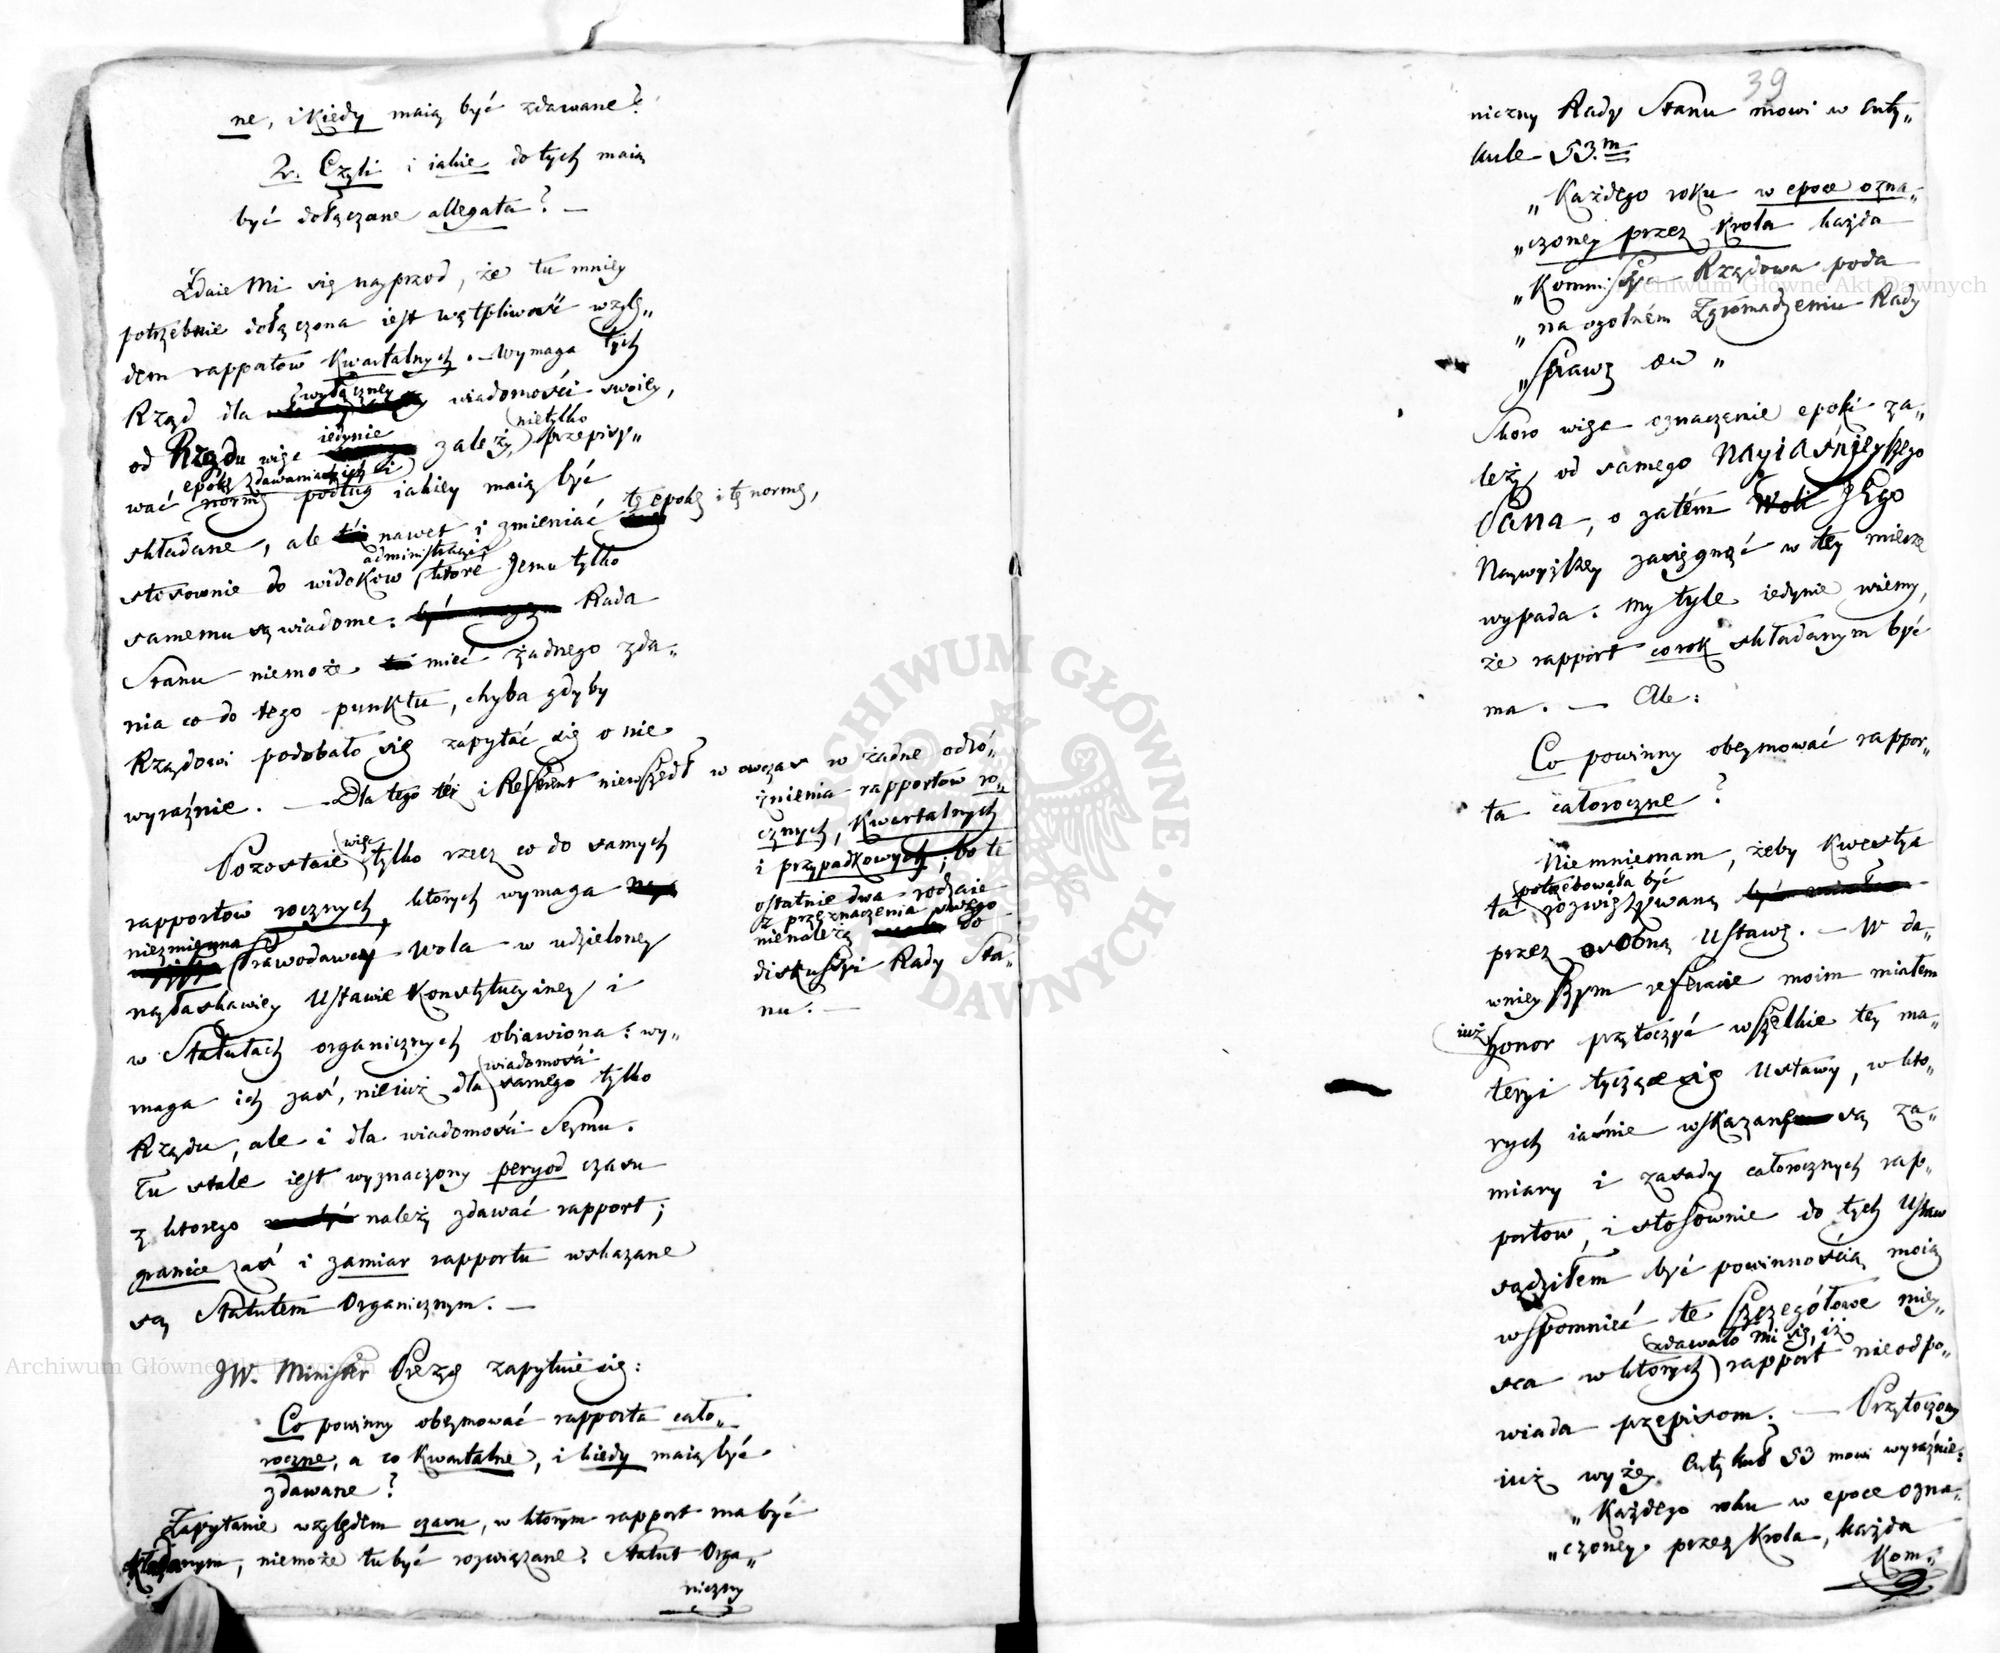 ne, i kiedy maią być zdawane?
2. Czyli i iakie do tych maią
być dołączone allegata? —
Zdaie mi się nayprzod, że tu mniey
potrzebnie dołączona iest wątpliwość wzglę„
dem rapportów Kwartalnych. — wymaga tych
Rząd dla wyłączney wiadomości swoiey,
od Rządu więc iedynie zależy, nietylko przepisy„
wać epokę zdawania ich i normę podług iakiey maią być
składane, ale nawet i zmieniać tę epokę i tę normę,
stosownie do widoków administracyi, które Jemu tylko
samemu są wiadome. Rada
Stanu niemoże mieć żadnego zda„
nia co do tego punktu, chyba gdyby
Rządowi podobało się zapytać się o nie
wyraźnie. — Dla tego też i Referent niewszedł w owczas w żadne odró„
żnienia rapportów ro„
cznych, Kwartalnych
i przypadkowych; bo te
ostatnie dwa rodzaie
z przeznaczenia swego
nienależą do
diskussyi Rady Sta„
nu. —
Pozostaie więc tylko rzecz co do samych
rapportów rocznych, których wymaga
niezmienna Prawodawcy wola w udzieloney
nayłaskawiey Ustawie Konstytucyiney i
w Statutach organicznych obiawiona: wy„
maga ich zaś, nieiuż dla wiadomości samego tylko
Rządu, ale i dla wiadomości Seymu.
Tu stale iest wyznaczony peryod czasu
z ktorego należy zdawać rapport;
granice zaś i zamiar rapportu wskazane
są Statutem Organicznym. —
JW. Minister Prezes zapytuie się:
Co powinny obeymować rapporta cało„
roczne, a co Kwartalne, i kiedy maią być
zdawane?
Zapytanie względem czasu, w którym rapport ma być
składanym, niemoże tu być rozwiązane. Statut Orga„
niczny
39
niczny Rady Stanu mowi w arty„
kule 53.m
„Każdego roku w epoce ozna„
„czoney przez Krola każda
„Kommissya Rządowa poda
„na ogolném Zgromadzeniu Rady
„Sprawę &c „
Skoro więc oznaczenie epoki za„
leży od samego Nayiaśnieyszego
Pana, o zatém Woli Jego
Naywyższey zasięgnąć w tey mierze
wypada: my tyle iedynie wiemy,
że rapport co rok składanym być
ma. — Ale:
Co powinny obeymować rappor„
ta całoroczne?
Niemniemam, żeby kwestya
ta potrzebowała być rozwiązywaną
przez osobną Ustawę. — W da„
wnieyszym referacie moim miałem
iuż honor przytoczyć wszelkie tey ma„
teryi tyczące się Ustawy, w któ„
rych iaśnie wskazane są za„
miary i zasady całorocznych rap„
portow, i stosownie do tych Ustaw
sądziłem być powinnością moią
wspomnieć te szczegółowe miey„
sca w których zdawało mi się, iż rapport nieodpo„
wiada przepisom. — Przytoczony
iuż wyżey Artykuł 53 mowi wyraźnie:
„Każdego roku w epoce ozna„
„czoney przez Krola, każda
Kom„